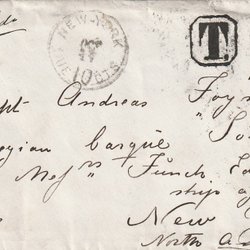 NEW-YORK
DUE 10 CTS
T
pt Andreas Foyn
gian barque "So
Messrs Funch
ship a
New
North a